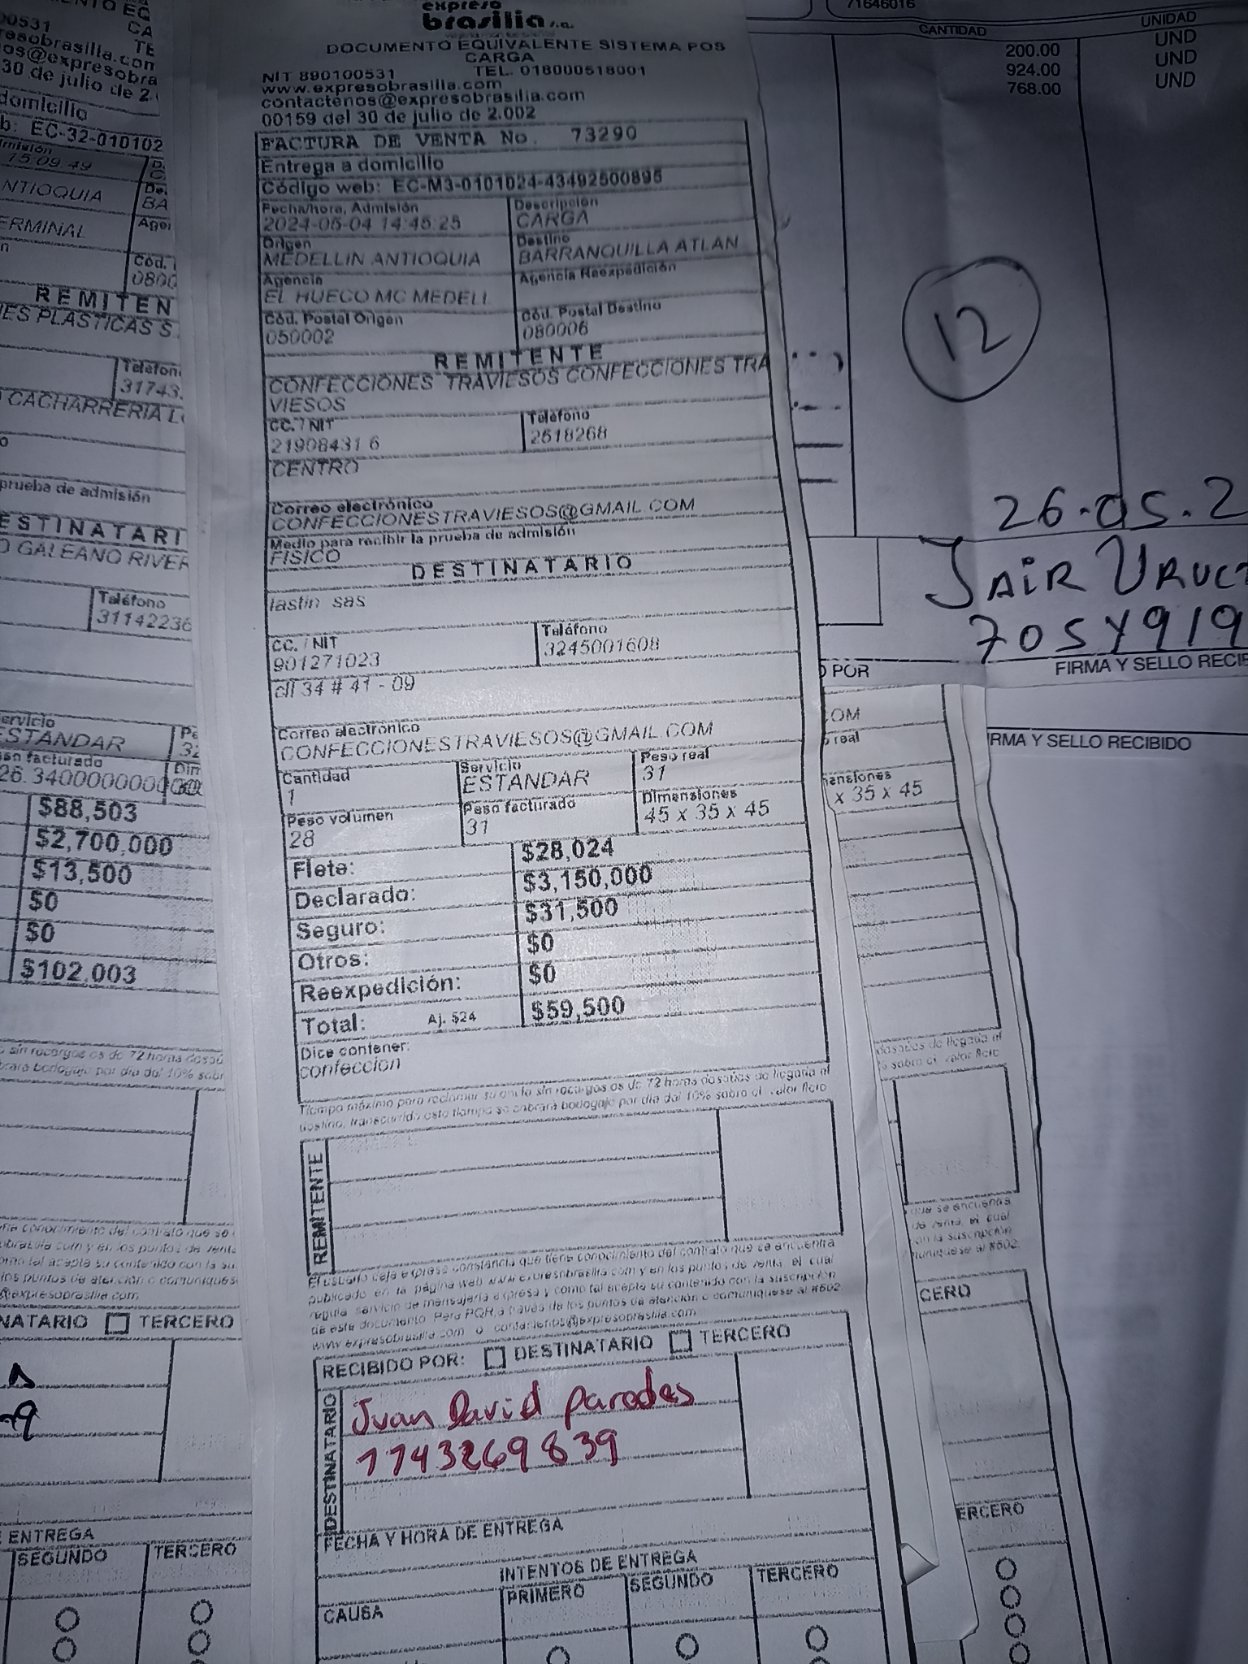 expreso
brasilia s.a.
DOCUMENTO EQUIVALENTE SISTEMA POS
CARGA
NIT 890100531 TEL. 018000518001
www.expresobrasilia.com
contactenos@expresobrasilia.com
00159 del 30 de julio de 2.002
FACTURA DE VENTA No. 73290
Entrega a domicilio
Código web: EC-M3-0101024-43492500895
Fecha/hora, Admisión Descripción
2024-05-04 14:45:25 CARGA
Origen Destino
MEDELLIN ANTIOQUIA BARRANQUILLA ATLAN
Agencia Agencia Reexpedición
EL HUECO MC MEDELL
Cód. Postal Origen Cód. Postal Destino
050002 080006
REMITENTE
CONFECCIONES TRAVIESOS CONFECCIONES TRA
VIESOS
CC. / NIT Teléfono
21908431 6 2518268
CENTRO
Correo electrónico
CONFECCIONESTRAVIESOS@GMAIL.COM
Medio para recibir la prueba de admisión
FISICO
DESTINATARIO
lastin sas
CC. / NIT Teléfono
901271023 3245001608
cll 34 # 41 - 09
Correo electrónico
CONFECCIONESTRAVIESOS@GMAIL.COM
Cantidad Servicio Peso real
1 ESTANDAR 31
Peso volumen Peso facturado Dimensiones
28 31 45 x 35 x 45
Flete: $28,024
Declarado: $3,150,000
Seguro: $31,500
Otros: $0
Reexpedición: $0
Total: Aj. $24 $59,500
Dice contener:
confeccion
Tiempo máximo para reclamar su envío sin recargos es de 72 horas después de llegada al
destino, transcurrido este tiempo se cobrará bodegaje por día del 10% sobre el valor flete
REMITENTE
El usuario deja expresa constancia que tiene conocimiento del contrato que se encuentra
publicado en la página web www.expresobrasilia.com y en los puntos de venta, el cual
regula servicio de mensajería expresa y como tal acepta su contenido con la suscripción
de este documento. Para PQR,a través de los puntos de atención o comuníquese al #502
www.expresobrasilia.com o contactenos@expresobrasilia.com
RECIBIDO POR: DESTINATARIO TERCERO
DESTINATARIO
Juan David paredes
1143269839
FECHA Y HORA DE ENTREGA
INTENTOS DE ENTREGA
CAUSA PRIMERO SEGUNDO TERCERO
00531
30 de julio de 2
domicilio
b: EC-32-010102
15:09:49
NTIOQUIA
ERMINAL
Cód.
0800
REMITEN
ES PLASTICAS S
31743
CACHARRERIA L
prueba de admisión
ESTINATARI
GALEANO RIVER
Teléfono
31142236
ervicio
ESTANDAR
facturado
26.34000000000
$88,503
$2,700,000
$13,500
$0
$0
$102,003
NATARIO TERCERO
ENTREGA
SEGUNDO TERCERO
71646016
CANTIDAD UNIDAD
200.00 UND
924.00 UND
768.00 UND
12
26-05-2
JAIR URUC
POR FIRMA Y SELLO RECIB
RMA Y SELLO RECIBIDO
OM
real
ensiones
x 35 x 45
CERO
ERCERO